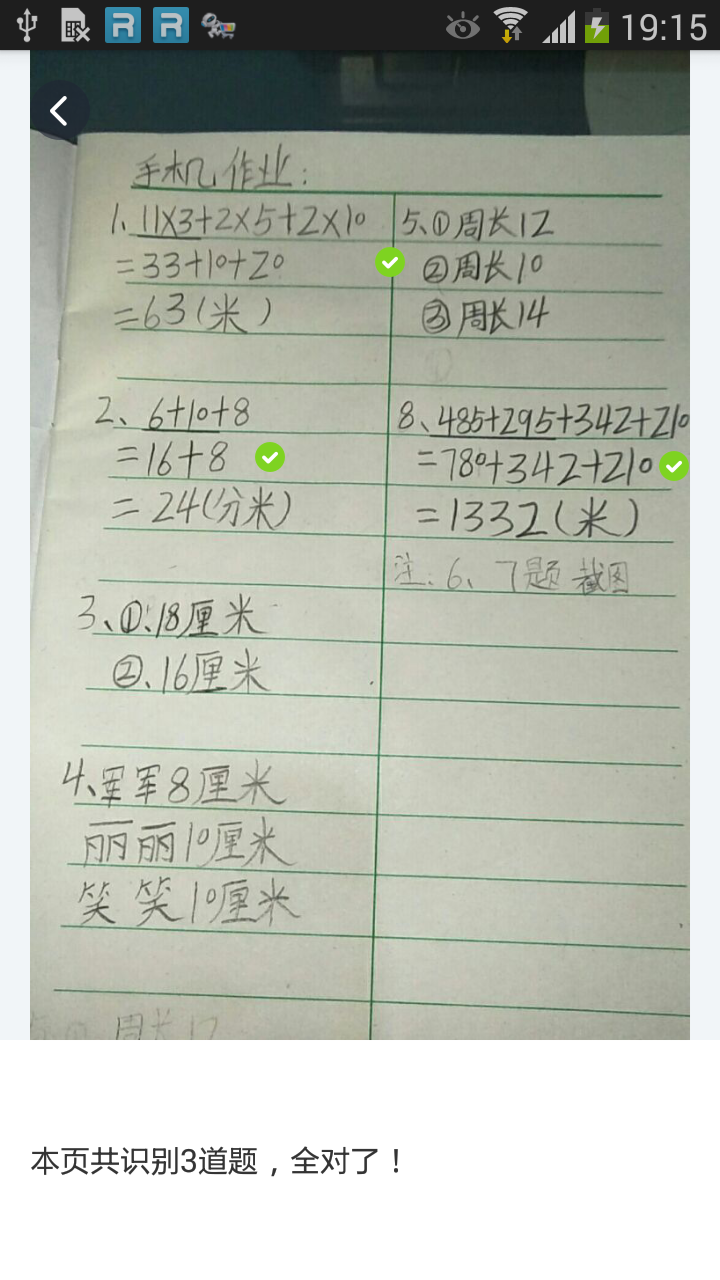 19:15
手机作业:
1、11×3+2×5+2×10
=33+10+20
=63(米)
2、6+10+8
=16+8
=24(分米)
3、①.18厘米
②、16厘米
4、军军8厘米
丽丽10厘米
笑笑10厘米
5、①周长12
②周长10
③周长14
8、485+295+342+210
=780+342+210
=1332(米)
注:6、7题截图
周长12
本页共识别3道题，全对了！